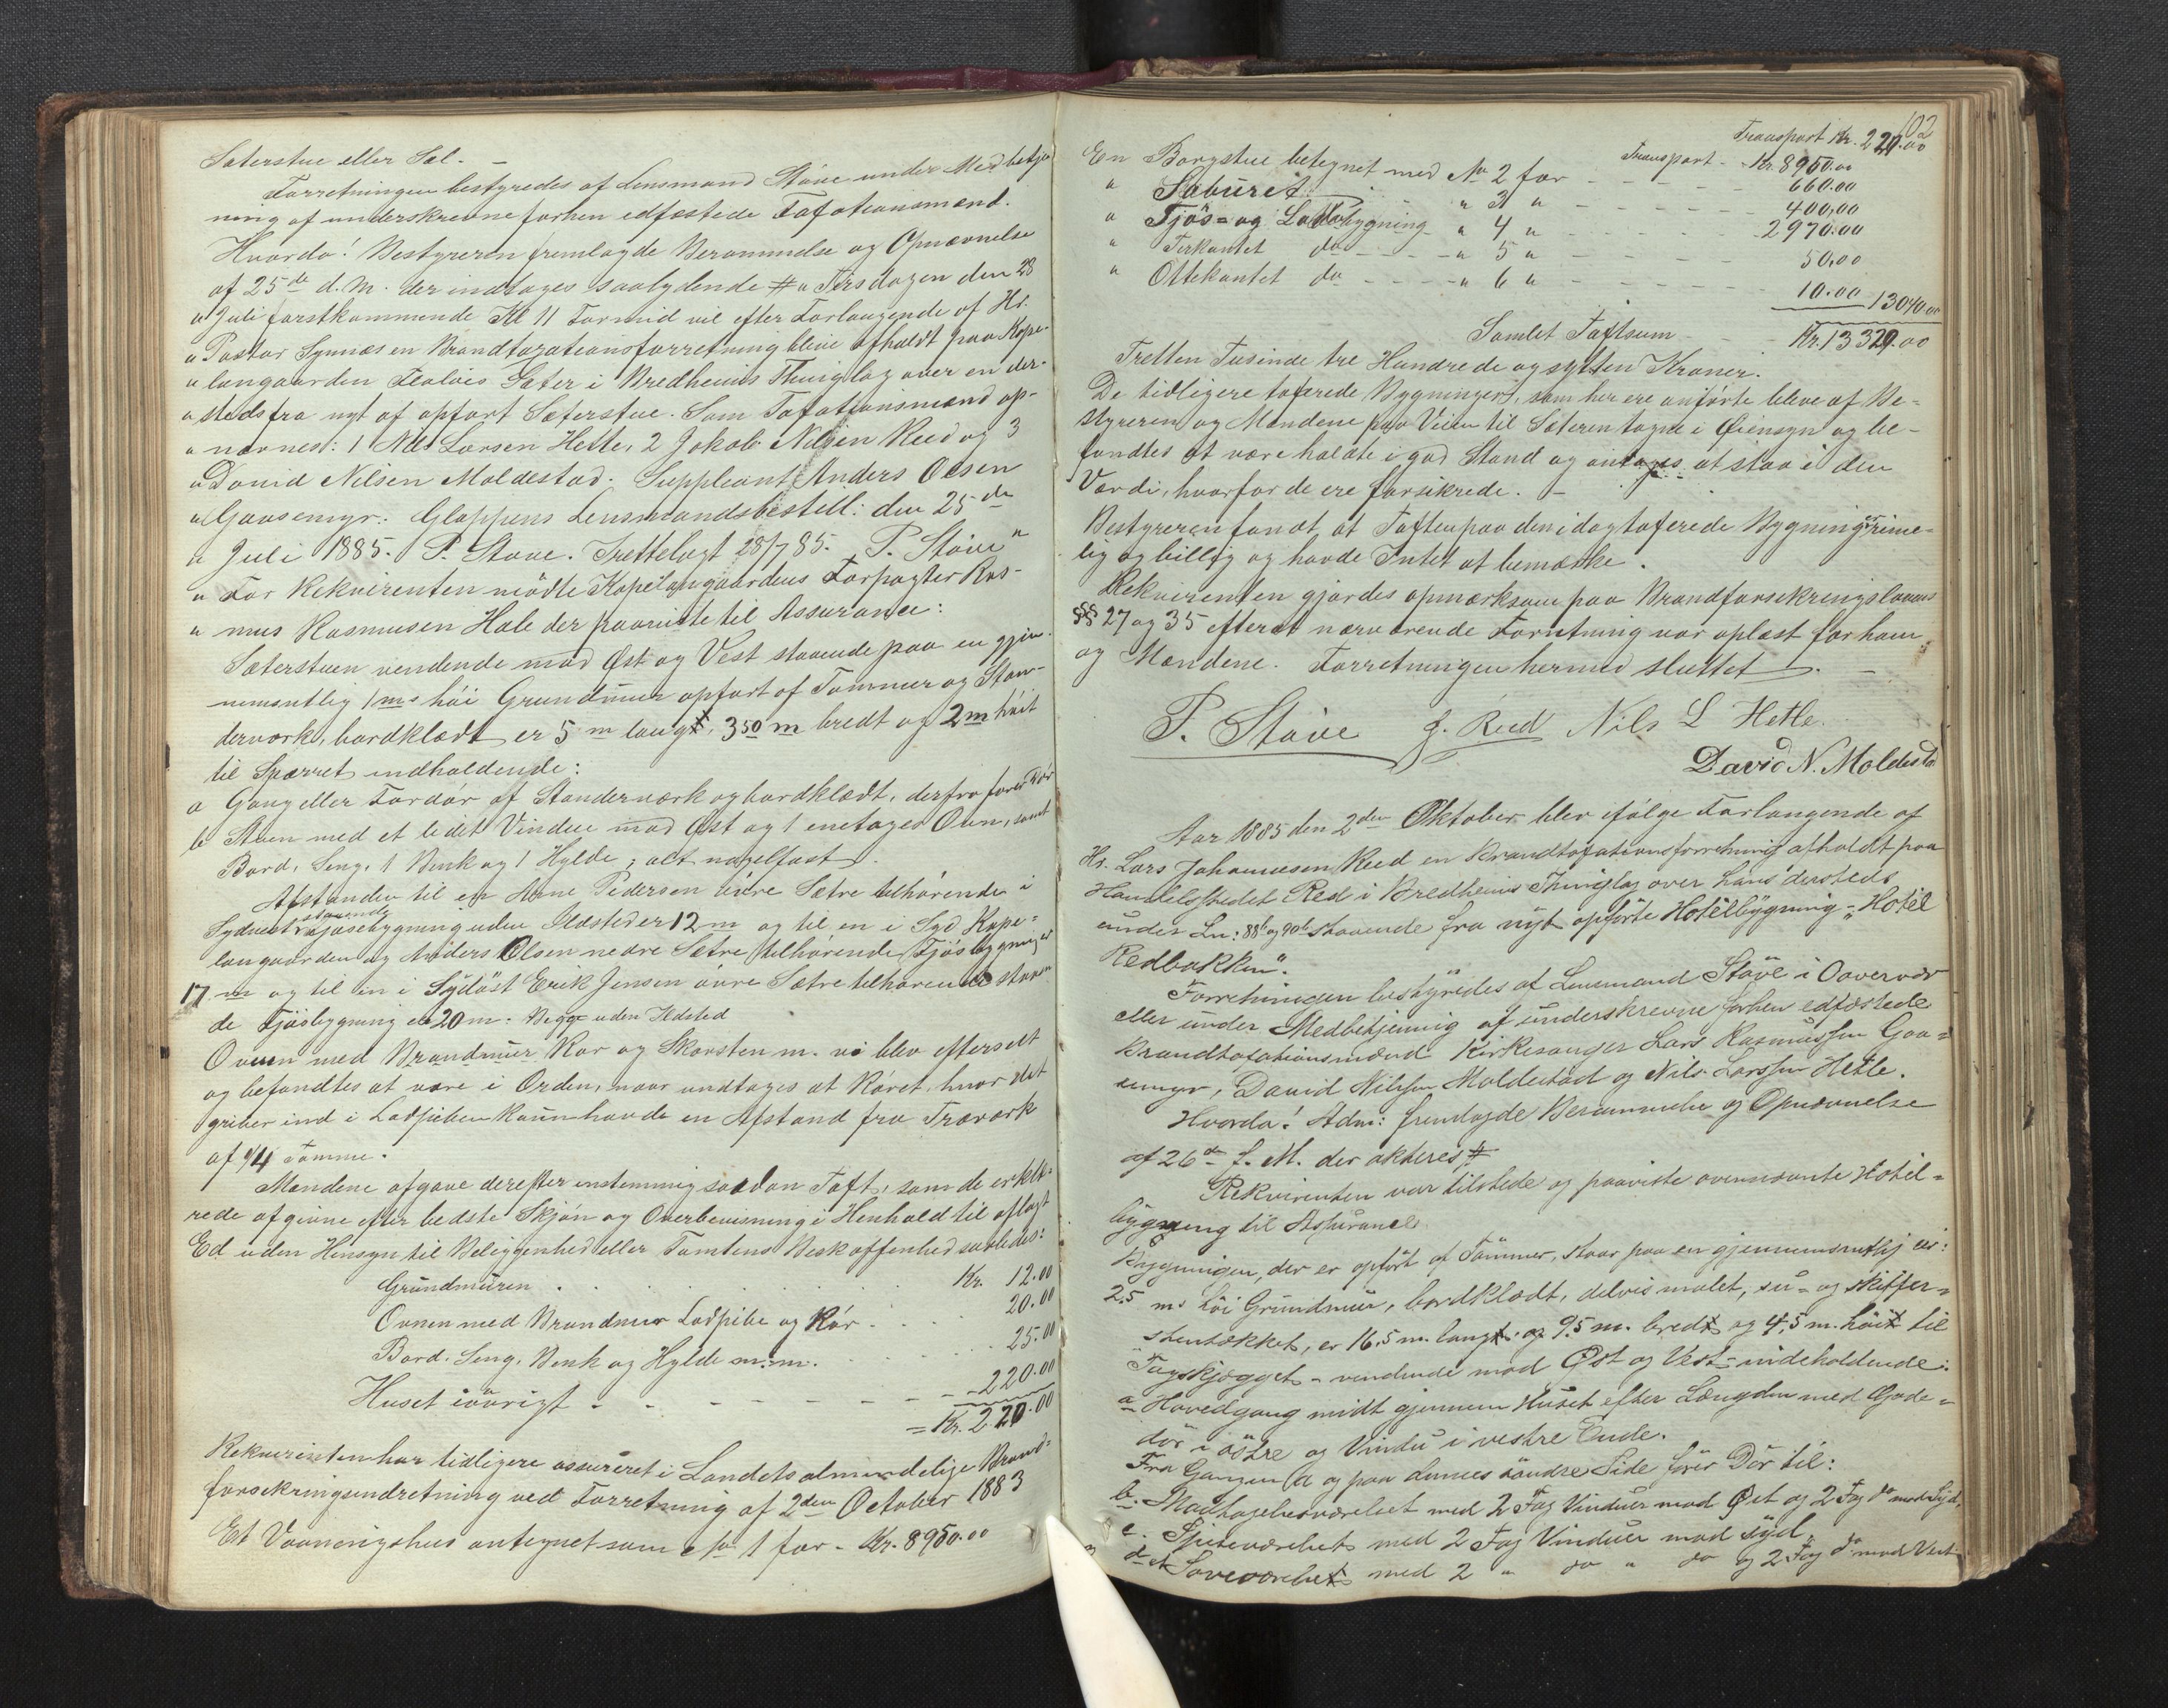 Sæterstue eller Sæl. –
Forretningen bestyredes af Lensmand Støve under Medbetje
ning af underskrevne forhen edfæstede Taxationsmænd.
Hvorda! Bestyreren fremlagde Berammelse og Opnævnelse
af 25de d. M. der indtages saalydende # „Tirsdagen den 28
„Juli førstkommende Kl 11 Formid vil efter Forlangende af Hr.
„Pastor Synnæs en Brandtaxationsforretning blive afholdt paa Kape-
„langaarden Sæter i Bredheims Thinglag over en der-
„steds fra nyt af opført Sæterstue. Som Taxationsmænd op-
„nævnes: 1 Nils Larsen Hetle, 2 Jakob Nilsen Reed og 3
„David Nilsen Moldestad. Suppleant Anders Olsen
„Gaasemyr. Gloppens Lensmandsbestill: den 25de
„Juli 1885. P. Støve. Frettelagt 28/7 85. P. Støve"
„For Rekvirenten mødte Kapellangaardens Forpagter Ras-
„mus Rasmusen Hole der paaviste til Assurance:
Sæterstuen vendende mod Øst og Vest staaende paa en gjen-
nemsnitlig 1 m. høi Grundmur opført af Tømmer og Stan-
derværk, bordklædt er 5 m langt, 3.50 m bredt og 2 m høit
til Sparret indholdende:
a Gang eller Fordør af Standerværk og bordklædt, derfra fører Dør
b Stuen med et lidet Vindue mod Øst og 1 enetages Ovn, samt
Bord, Seng, 1 Benk og 1 Hylde, alt nagelfast.
Afstanden til en Arne Pedersen øvre Sætre tilhørende i
staaende
Sydvest Fjøsbygning uden Ildsted er 12 m og til en i Syd Kape-
langaarden og Anders Olsen nedre Sætre tilhørende Fjøsbygninger
17 m og til en i Sydøst Erik Jensen øvre Sætre tilhørende staaen
de Fjøsbygning er 20 m. Begge uden Ildsted
Ovnen med Brandmur Rør og Skorsten m. v. blev efterseet
og befandtes at være i Orden, naar undtages at Røret, hvor det
griber ind i Ladpiben kun havde en Afstand fra Træværk
af 4 Tomme.
Mændene afgave derefter enstemmig saadan Taxt, som de erklæ-
rede afgivne efter bedste Skjøn og Overbevisning i Henhold til aflagt
Ed uden Hensyn til Beliggenhed eller Tomtens Beskaffenhed saaledes:
Grundmuren . . . . . Kr. 12.00
Ovnen med Brandmur Ladpibe og Rør . . 20.00
Bord, Seng, Benk og Hylde m.m. . . . 25.00
Huset iøvrigt - - - - - - 220.00
= Kr. 220.00
Rekvirenten har tidligere assureret i Landets almindelige Brand-
forsekringsindretning ved Forretning af 2den October 1883
Et Vaaningshus antegnet som No 1 for - Kr. 8950.00
102
Transport Kr. 220.00
Transport - Kr. 8950.00
En Borgstue betegnet med No 2 for - - - - 660.00
„ Stabúret „ 3 „ - - - - 400,00
„ Fjøs- og Ladebygning „ 4 „ - - - - 2970.00
„ Firkantet do - - - „ 5 „ - - - 50,00
„ Ottekantet do - - - „ 6 „ - - - 10.00 13040.00
Samlet Taxtsum - - Kr. 13320.00
Tretten Tusinde tre Hundrede og sytten Kroner.
De tidligere taxerede Bygninger, som her ere anførte bleve af Be-
styreren og Mændene paa Veien til Sæteren tagne i Øiensyn og be-
fandtes at være holdte i god Stand og antages at staa i den
Værdi, hvorfor de ere forsikrede. –
Bestyreren fandt at Taxten paa den idag taxerede Bygning er rime-
lig og billig og havde Intet at bemærke.
Rekvirenten gjordes opmærksom paa Brandforsekringslovens
§§ 27 og 35 efterat nærværende Forretning var oplæst for ham
og Mændene. Forretningen hermed sluttet.
P. Støve J. Reed Nils L Hetle.
David N. Moldestad
Aar 1885 den 2den Oktober blev ifølge Forlangende af
Hr. Lars Johannesen Reed en Brandtaxationsforretning afholdt paa
Handelsstedet Red i Bredheims Thinglag over hans dersteds
under Ln: 88b og 90b staaende fra nyt opførte Hotelbygning - „Hotel
Redbakken".
Forretningen bestyredes af Lensmand Støve i Overvær
eller under Medbetjening af underskrevne forhen edfæstede
Brandtaxationsmænd Kirkesanger Lars Rasmussen Gaa-
semyr, David Nilssen Moldestad og Nils Larssen Hetle.
Hvorda! Adm: fremlagde Berammelse og Opnævnelse
af 26de f. M. der akteres #
Rekvirenten var tilstede og paaviste ovennævnte Hotel-
bygning til Assurance
Bygningen, der er opført af Tømmer, staar paa en gjennemsnitlig
2.5 m. høi Grundmur, bordklædt, delvis malet, su- og skiffer-
stentækket, er 16,5 m. langt og 9.5 m. bredt og 4,5 m. høit til
Tagskjægget - vendende mod Øst og Vest - indeholdende:
a Hovedgang midt gjennem Huset efter Længden med Gade-
dør i østre og Vindu i vestre Ende.
Fra Gangen a og paa dennes søndre Side fører Dør til:
b. Modtagelsesværelset med 2 Fag Vinduer mod Øst og 2 Fag do mod Syd.
c. Spiseværelset med 2 Fag Vinduer mod Syd.
d. et Soveværelse med 2 „ do „ do og 2 Fag do mod Vest